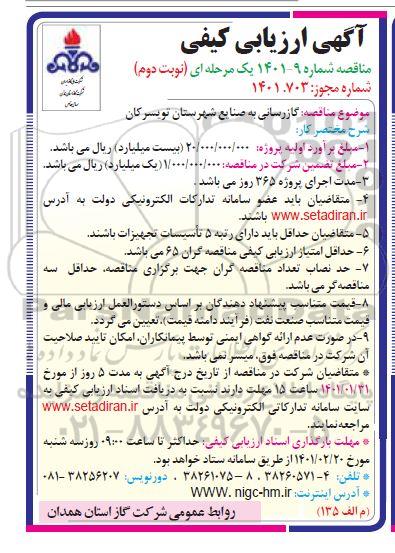 آگهی ارزیابی کیفی
مناقصه شماره ۹-۱۴۰۱ یک مرحله ای (نوبت دوم)
شماره مجوز: ۱۴۰۱.۷۰۳
موضوع مناقصه: گازرسانی به صنایع شهرستان تویسرکان
شرح مختصر کار:
۱-مبلغ برآورد اولیه پروژه: ۲۰/۰۰۰/۰۰۰/۰۰۰ (بیست میلیارد) ریال می باشد.
۲-مبلغ تضمین شرکت در مناقصه: ۱/۰۰۰/۰۰۰/۰۰۰ (یک میلیارد) ریال می باشد.
۳-مدت اجرای پروژه ۳۶۵ روز می باشد.
۴- متقاضیان باید عضو سامانه تدارکات الکترونیکی دولت به آدرس
www.setadiran.ir باشند.
۵- متقاضیان حداقل باید دارای رتبه ۵ تأسیسات تجهیزات باشند.
۶- حداقل امتیاز ارزیابی کیفی مناقصه گران ۶۵ می باشد.
۷- حد نصاب تعداد مناقصه گران جهت برگزاری مناقصه، حداقل سه
مناقصه گر می باشد.
۸-قیمت متناسب پیشنهاد دهندگان بر اساس دستورالعمل ارزیابی مالی و
قیمت متناسب صنعت نفت (فرآیند دامنه قیمت)، تعیین می گردد.
۹-در صورت عدم ارائه گواهی ایمنی توسط پیمانکاران، امکان تایید صلاحیت
آن شرکت در مناقصه فوق، میسر نمی باشد.
* متقاضیان شرکت در مناقصه از تاریخ درج آگهی به مدت ۵ روز از مورخ
۱۴۰۱/۰۱/۳۱ ساعت ۱۵ مهلت دارند نسبت به دریافت اسناد ارزیابی کیفی به
سایت سامانه تدارکاتی الکترونیکی دولت به آدرس www.setadiran.ir
مراجعه نمایند.
* مهلت بارگذاری اسناد ارزیابی کیفی: حداکثر تا ساعت ۰۹:۰۰ روز سه شنبه
مورخ ۱۴۰۱/۰۲/۲۰ از طریق سامانه ستاد خواهد بود.
* تلفن: ۴-۳۸۲۶۰۵۷۱ ، ۸-۳۸۲۶۱۰۷۵ ، دورنویس: ۳۸۲۵۶۲۰۷-۰۸۱
* آدرس اینترنت: WWW. nigc-hm.ir
(م الف ۱۳۵) روابط عمومی شرکت گاز استان همدان